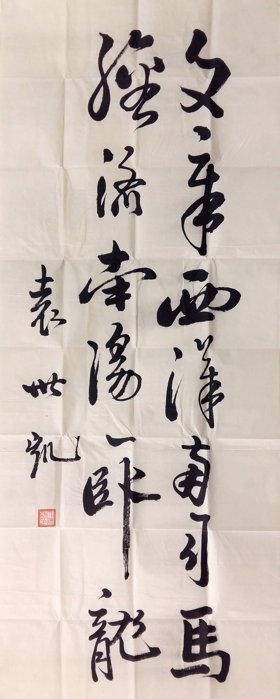 文章西漢兩司馬
經濟南陽一卧龍
袁世凱